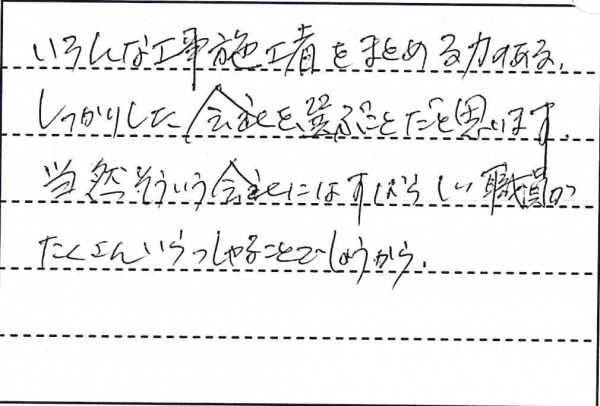 いろんな工事施工者をまとめる力のある、
しっかりした会社を選ぶことだと思います。
当然そういう会社にはすばらしい職員が
たくさんいらっしゃることでしょうから。